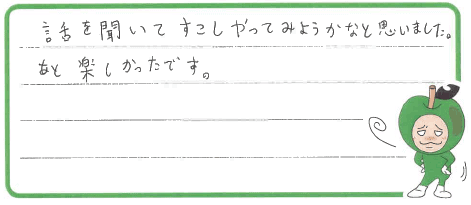 話を聞いてすこしやってみようかなと思いました。
あと楽しかったです。